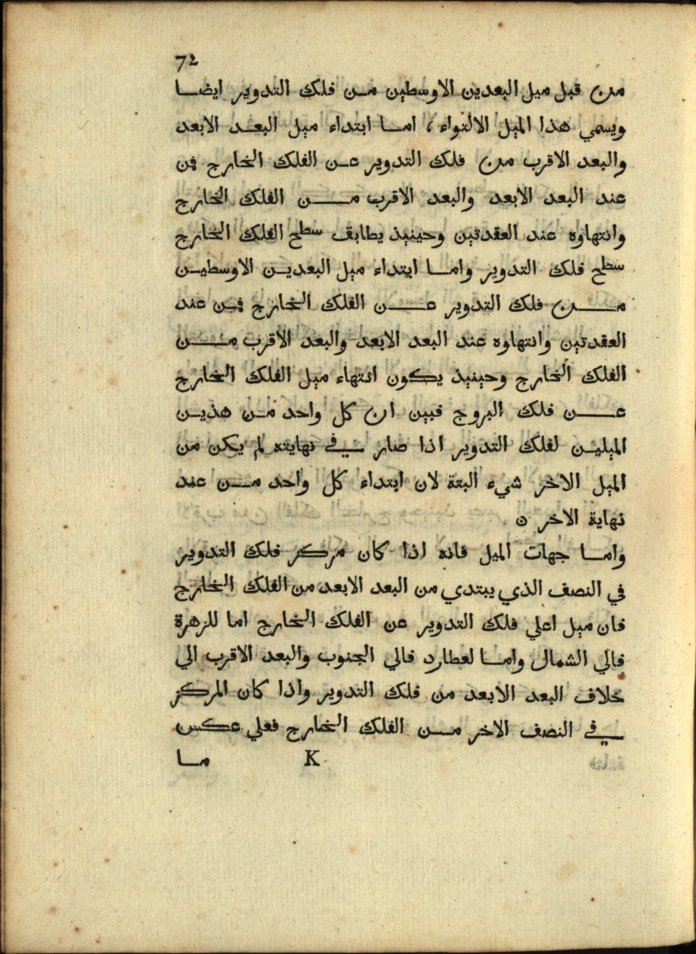 72
من قبل ميل البعدين الاوسطين من فلك التدوير ايضا
ويسمي هذا الميل الالتواء، اما ابتداء ميل البعد الابعد
والبعد الاقرب من فلك التدوير عن الفلك الخارج فمن
عند البعد الابعد والبعد الاقرب من الفلك الخارج
وانتهاوه عند العقدتين وحينيذ يطابق سطح الفلك الخارج
سطح فلك التدوير واما ابتداء ميل البعدين الاوسطين
من فلك التدوير عن الفلك الخارج فمن عند
العقدتين وانتهاوه عند البعد الابعد والبعد الاقرب من
الفلك الخارج وحينيذ يكون انتهاء ميل الفلك الخارج
عن فلك البروج فبين ان كل واحد من هذين
الميلين لفلك التدوير اذا صار في نهايته لم يكن من
الميل الاخر شيء البتة لان ابتداء كل واحد من عند
نهاية الاخر ۞
واما جهات الميل فانه اذا كان مركز فلك التدوير
في النصف الذي يبتدي من البعد الابعد من الفلك الخارج
فان ميل اعلي فلك التدوير عن الفلك الخارج اما للزهرة
فالي الشمال واما لعطارد فالي الجنوب والبعد الاقرب الي
خلاف البعد الابعد من فلك التدوير واذا كان المركز
في النصف الاخر من الفلك الخارج فعلي عكس
K ما